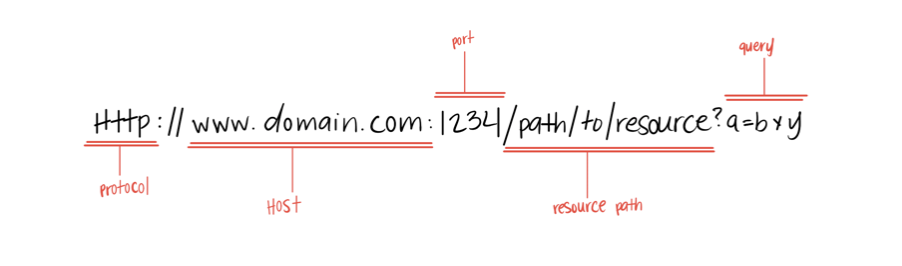 port
query
Http://www.domain.com:1234/path/to/resource?a=b*y
protocol
Host
resource path